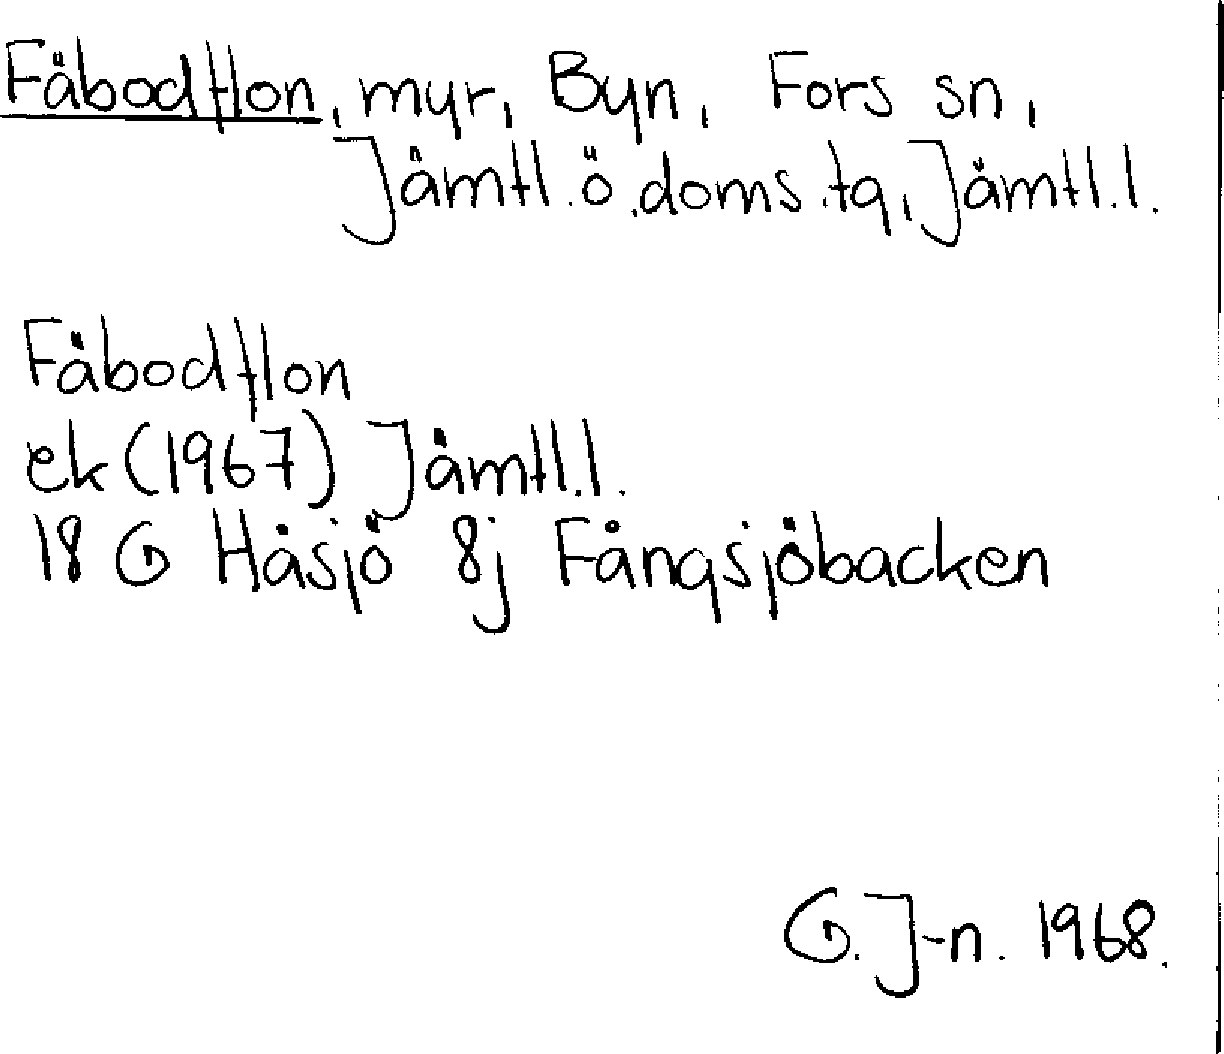 Fäbodflon, myr, Byn, Fors sn,
Jämtl. ö. doms. tg, Jämtl. l.
Fäbodflon
ek (1967) Jämtl. l.
18 G Håsjö 8j Fångsjöbacken
G. J-n. 1968.